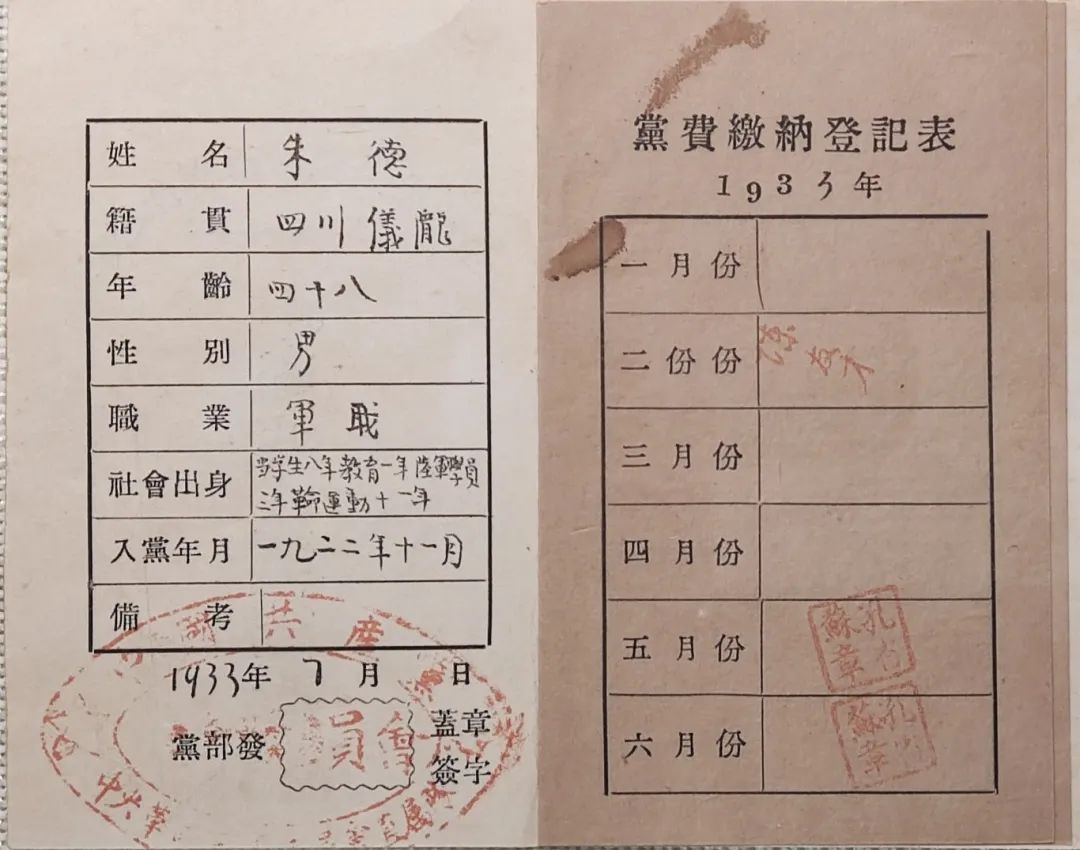 姓名 朱德
籍貫 四川儀隴
年齡 四十八
性別 男
職業 軍职
社會出身 当学生八年教育一年陸軍學員
三年革命運動十一年
入黨年月 一九二二年十一月
備考
1933年 7月 日
黨部發 蓋章
簽字
共產
員會
中央革
直屬
黨費繳納登記表
193 年
一月份
二份份
三月份
四月份
五月份 孔石
蘇章
六月份 孔
蘇章